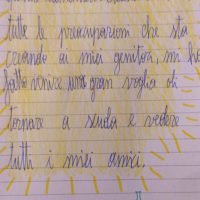 tutte le preoccupazioni che sta
creando ai miei genitori, mi ha
fatto venire una gran voglia di
tornare a scuola e vedere
tutti i miei amici.